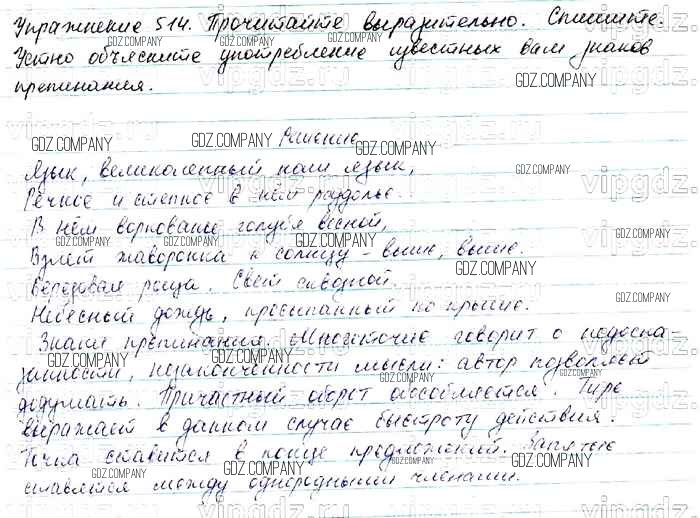 Упражнение 514. Прочитайте выразительно. Спишите.
Устно объясните употребление известных вам знаков
препинания.
Решение
Язык, великолепный наш язык,
Речное и степное в нём раздолье...
В нём воркованье голубя весной,
Взлёт жаворонка к солнцу – выше, выше.
Берёзовая роща. Свет сквозной.
Небесный дождь, просыпанный по крыше.
Знаки препинания. Многоточие говорит о недоска-
занности, незаконченности мысли: автор позволяет
додумать. Причастный оборот обособляется. Тире
выражает в данном случае быстроту действия.
Точка ставится в конце предложений. Запятые
ставятся между однородными членами.
GDZ.COMPANY
vipgdz.ru